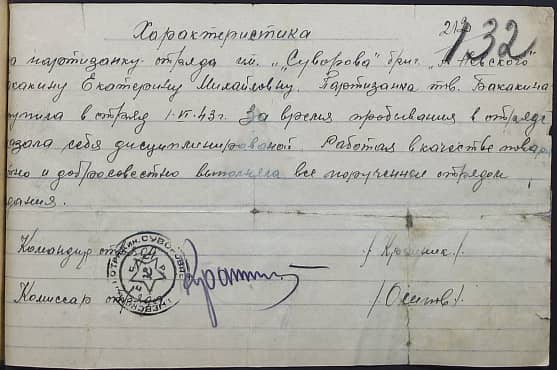 Характеристика
213
132
о партизанку отряда им. „Суворова" бриг. „А. Невского"
какину Екатерину Михайловну. Партизанка тв. Бакакина
тупила в отряд 1.VI.43г. За время пробывания в отряде
азала себя дисциплинированой. Работая в качестве повар
тно и добросовестно выполняла все порученные отрядом
дания.
Командир отряда /Кражник./
Комиссар отряда /Осипов./